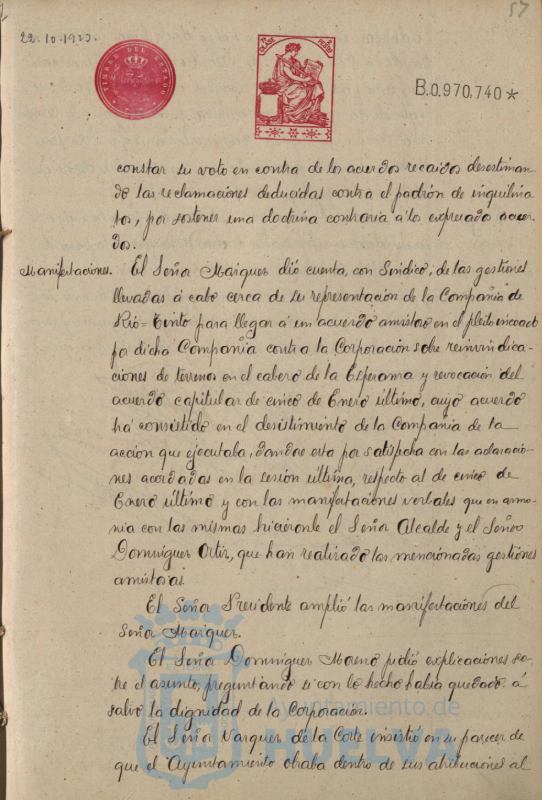 57
22.10.1923.
TIMBRE DEL ESTADO
CLASE
B.0.970,740*
constar su voto en contra de los acuerdos recaidos desestiman-
do las reclamaciones deducidas contra el padrón de inquilina
tos, por sostener una doctrina contraria a los expresados acuer-
dos.
Manifestaciones. El Señor Marquez dió cuenta, con Sindico, de las gestiones
llevadas á cabo cerca de la representación de la Compañia de
Rio=Tinto para llegar á un acuerdo amistoso en el pleito incoado
por dicha Compañia contra la Corporación sobre reinvindica-
ciones de terrenos en el cabezo de la Esperanza y revocación del
acuerdo capitular de cinco de Enero último, cuyo acuerdo
ha consistido en el desistimiento de la Compañia de la
acción que ejecutaba, dandose esta por satisfecha con las aclaracio-
nes acordadas en la sesión última, respecto al de cinco de
Enero último y con las manifestaciones verbales que en armo-
nia con las mismas hicieronle el Señor Alcalde y el Señor
Dominguez Ortiz, que han realizado las mencionadas gestiones
amistosas.
El Señor Presidente amplió las manifestaciones del
Señor Marquez.
El Señor Dominguez Moreno pidió explicaciones so-
bre el asunto, preguntando si con lo hecho habia quedado á
salvo la dignidad de la Corporación.
El Señor Vazquez de la Corte insistió en su parecer de
que el Ayuntamiento obraba dentro de sus atribuciones al
Ayuntamiento de
HUELVA